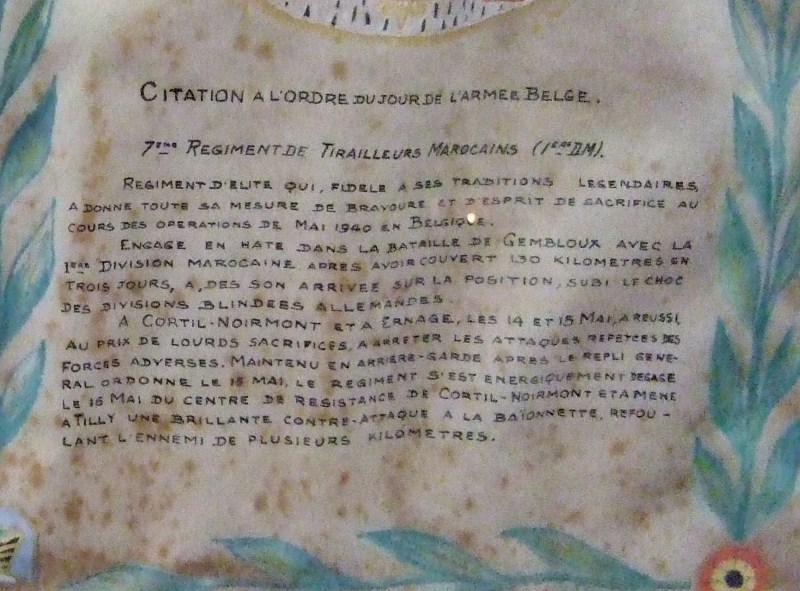 CITATION A L'ORDRE DU JOUR DE L'ARMEE BELGE.
7ème REGIMENT DE TIRAILLEURS MAROCAINS (1ère D.M).
REGIMENT D'ELITE QUI, FIDELE A SES TRADITIONS LEGENDAIRES,
A DONNE TOUTE SA MESURE DE BRAVOURE ET D'ESPRIT DE SACRIFICE AU
COURS DES OPERATIONS DE MAI 1940 EN BELGIQUE.
ENGAGE EN HATE DANS LA BATAILLE DE GEMBLOUX AVEC LA
1ère DIVISION MAROCAINE APRES AVOIR COUVERT 130 KILOMETRES EN
TROIS JOURS, A, DES SON ARRIVEE SUR LA POSITION, SUBI LE CHOC
DES DIVISIONS BLINDEES ALLEMANDES.
A CORTIL-NOIRMONT ET A ERNAGE, LES 14 ET 15 MAI, A REUSSI,
AU PRIX DE LOURDS SACRIFICES, A ARRETER LES ATTAQUES REPETEES DES
FORCES ADVERSES. MAINTENU EN ARRIERE-GARDE APRES LE REPLI GENE-
RAL ORDONNE LE 15 MAI, LE REGIMENT S'EST ENERGIQUEMENT DEGAGE
LE 16 MAI DU CENTRE DE RESISTANCE DE CORTIL-NOIRMONT ET A MENE
A TILLY UNE BRILLANTE CONTRE-ATTAQUE A LA BAÏONNETTE, REFOU-
LANT L'ENNEMI DE PLUSIEURS KILOMETRES.